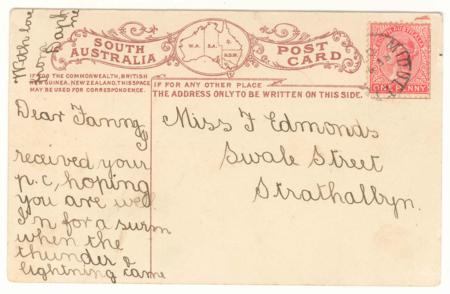 SOUTH AUSTRALIA
W.A. S.A. N.S.W.
POST CARD
IF FOR THE COMMONWEALTH, BRITISH
NEW GUINEA, NEW ZEALAND, THIS SPACE
MAY BE USED FOR CORRESPONDENCE.
IF FOR ANY OTHER PLACE
THE ADDRESS ONLY TO BE WRITTEN ON THIS SIDE.
ONE PENNY
"With love
from
me
Dear Fanny
received your
p.c, hoping
you are well
I'n for a swim
when the
thunder &
lightning came
Miss F Edmonds
Swale Street
Strathalbyn.